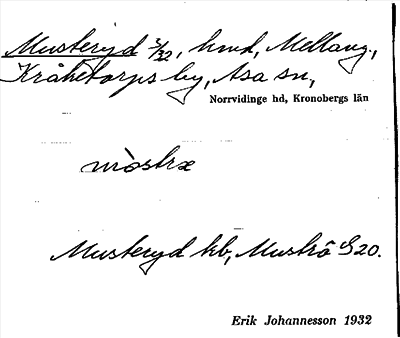 Musteryd 5/32, hmd, Mellang.,
Kråketorps by, Asa sn,
Norrvidinge hd, Kronobergs län
mòstrx
Musteryd kb, Muströ G20.
Erik Johannesson 1932